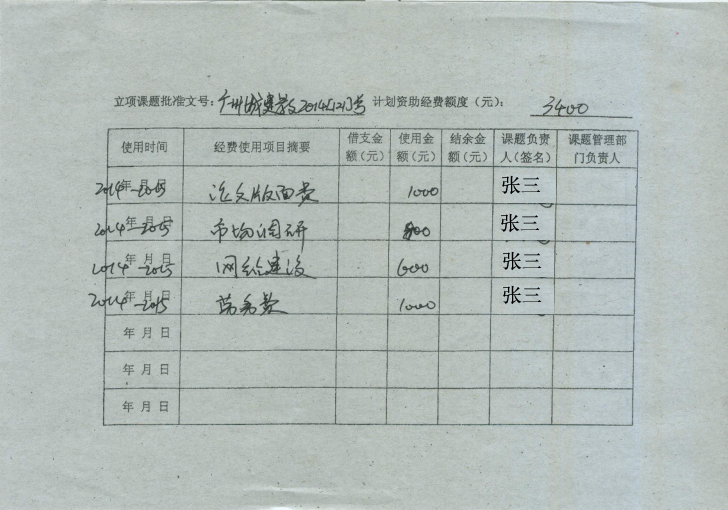 立项课题批准文号: 广州城建教2014[12]号 计划资助经费额度(元): 3400
使用时间 经费使用项目摘要 借支金额(元) 使用金额(元) 结余金额(元) 课题负责人(签名) 课题管理部门负责人
年 月 日 2014-2015 论文版面费 1000 张三
年 月 日 2014-2015 市场调研 800 张三
年 月 日 2014-2015 网络建设 600 张三
年 月 日 2014-2015 劳务费 1000 张三
年 月 日
年 月 日
年 月 日